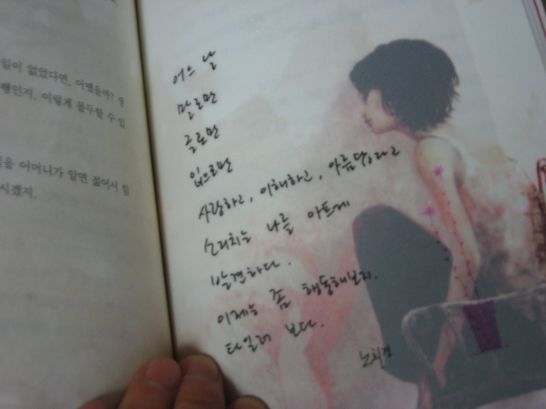 일이 없었다면, 어땠을까?
행인지, 이렇게 몰두할 수 있
을 어머니가 알면 젊어서
시겠지.
어느 날
말로만
글로만
입으로만
사랑하고, 이해하고, 아름답다고
소리치는 나를 아프게
발견하다.
이제는 좀 행동해보지.
타일러 보다.
노희경